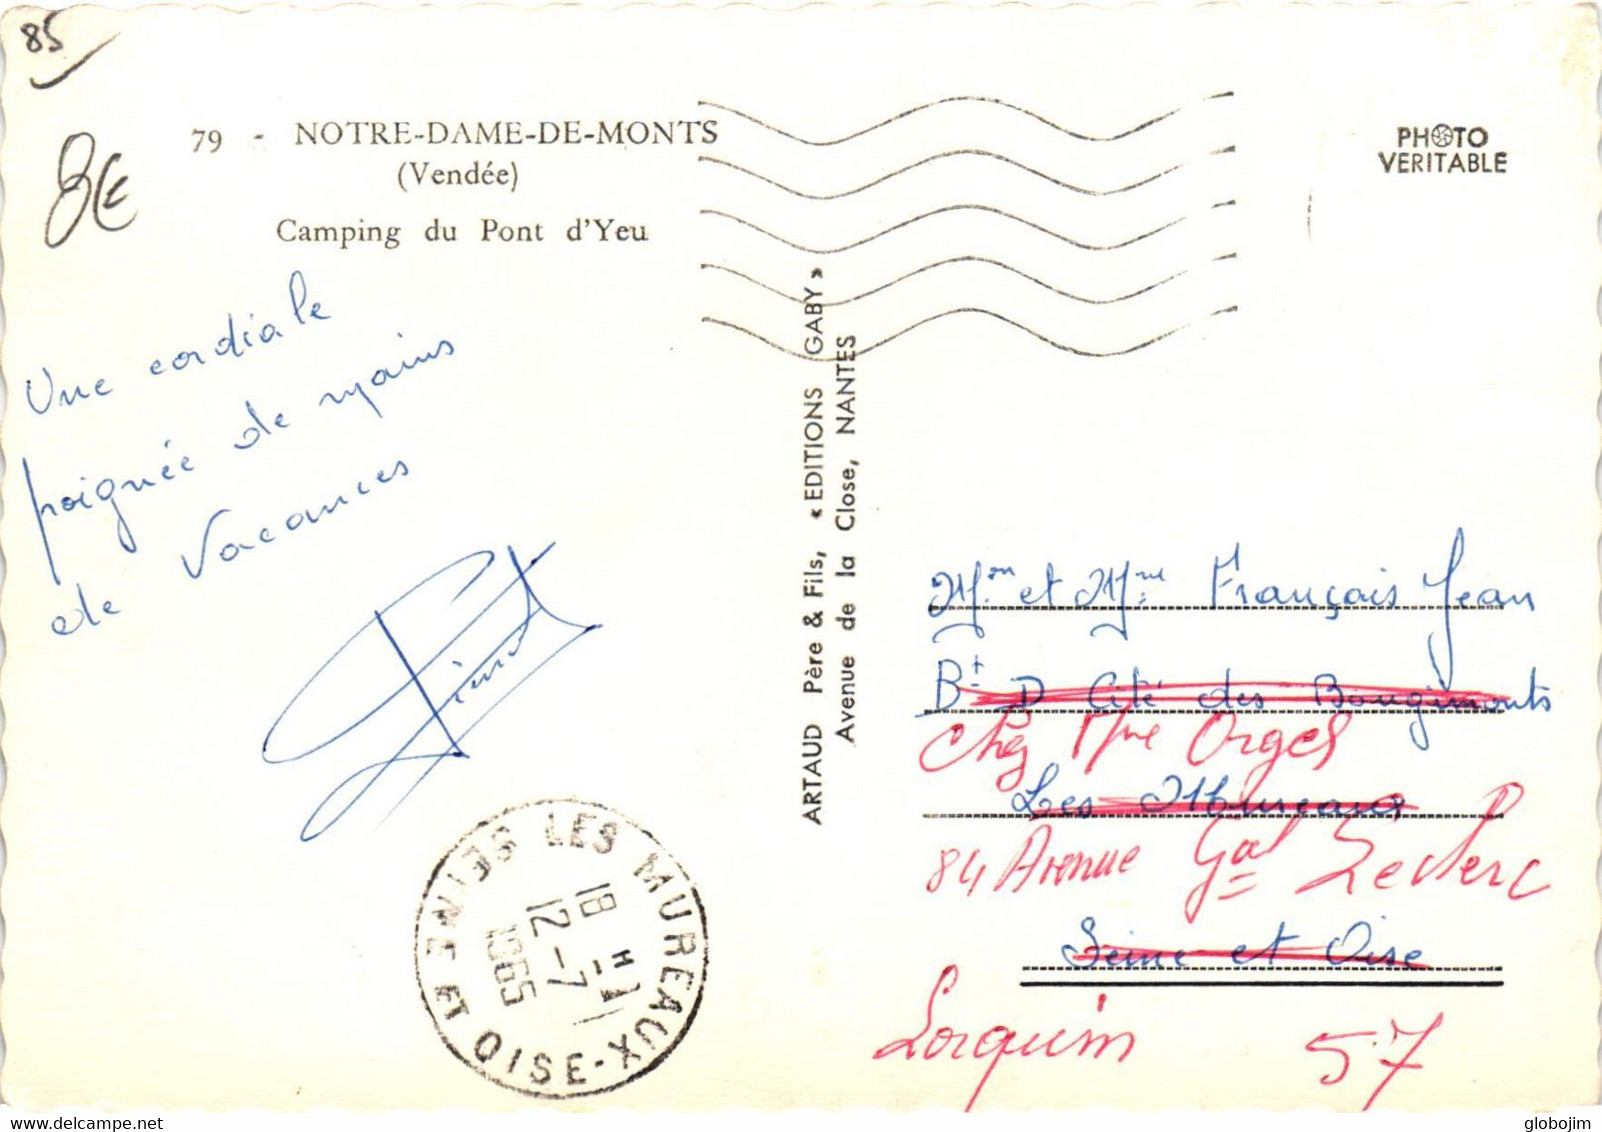 85
8€
79 - NOTRE-DAME-DE-MONTS
(Vendée)
Camping du Pont d'Yeu
PHOTO
VERITABLE
Une cordiale
poignée de mains
de Vacances
ARTAUD Père & Fils, « EDITIONS GABY »
Avenue de la Close, NANTES
LES MUREAUX - SEINE ET OISE
18 H
12-7
1965
Mr et Mme François Jean
Bt D Cité des Bougimonts
Chez Mme Orgel
Les Mureaux
84 Avenue Gal Leclerc
Seine et Oise
Lorquin 57
delcampe.net
globojim